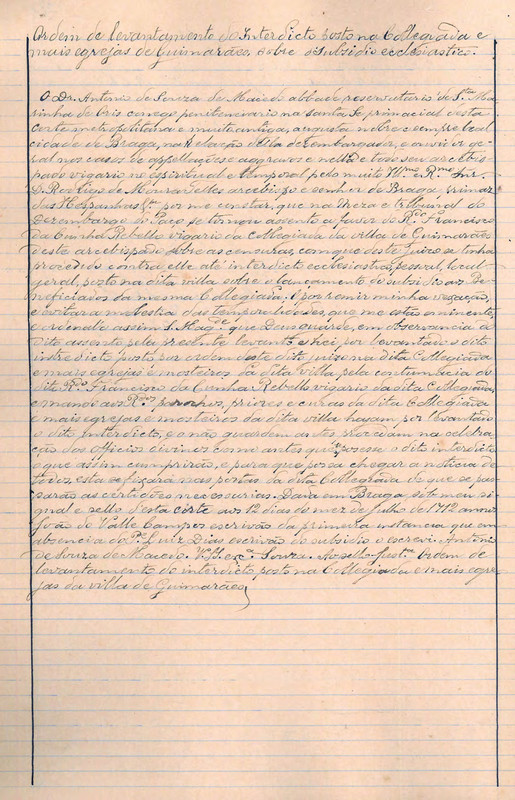 Ordem de levantamento do Interdicto posto na Collegiada e
mais egrejas de Guimarães, sobre o Subsidio ecclesiastico.
O Dr. Antonio de Souza de Macedo abbade reservatario de Sta Ma-
rinha de conego penitenciario na santa Sé primacial desta
corte metropolitana e muito antiga, augusta nobre e sempre leal
cidade de Braga, na Relação della dezembargador, e ouvidor ge-
ral nos casos de appellações e aggravos e nella e todo seu arcebis-
pado vigario no espiritual e temporal pelo muito Illmo Rmo Snr.
D. Rodrigo de Moura Telles arcebispo e senhor de Braga, primaz
das Hespanhas &a por me constar, que na Meza e tribunal do
Dezembargo do Paço se tomou assento a favor do Rdo Francisco
da Cunha Rebello vigario da Collegiada da villa de Guimarães
deste arcebispado sobre as censuras, com que deste juizo se tinha
procedido contra elle até interdicto ecclesiastico, pessoal, local
geral, posto na dita villa sobre o lançamento do subsidio aos Be-
neficiados da mesma Collegiada. E por remir minha vexação,
e evitar a molestia das temporalidades, que me estão iminentes,
e ordenal-o assim S. Magde que Deus guarde, em observancia do
dito assento pela presente levanto e hei por levantado o dito
interdicto posto por ordem deste dito juizo na dita Collegiada
e mais egrejas e mosteiros da dita villa pela contumacia do
dito Rdo Francisco da Cunha Rebello vigario da dita Collegiada,
e mando aos Rdos parochos, priores e curas da dita Collegiada
e mais egrejas e mosteiros da dita villa hajam por levantado
o dito interdicto, e o não guardem antes procedam na celebra-
ção dos officios divinos como antes que se posesse o dito interdicto
o que assim cumprirão, e para que possa chegar a noticia de
todos, esta se fixará nas portas da dita Collegiada de que se pas-
sarão as certidões necessarias. Dada em Braga sob meu si-
gnal e sello desta côrte aos 12 dias do mez de Julho de 1712 annos.
João do Valle Campos escrivão da primeira instancia que em
absencia do Pe Luiz Dias escrivão do subsidio o escrevi. Antonio
de Souza de Macedo. Souza. Ao sello Ordem de
levantamento do interdicto posto na Collegiada e mais egre-
jas da villa de Guimarães